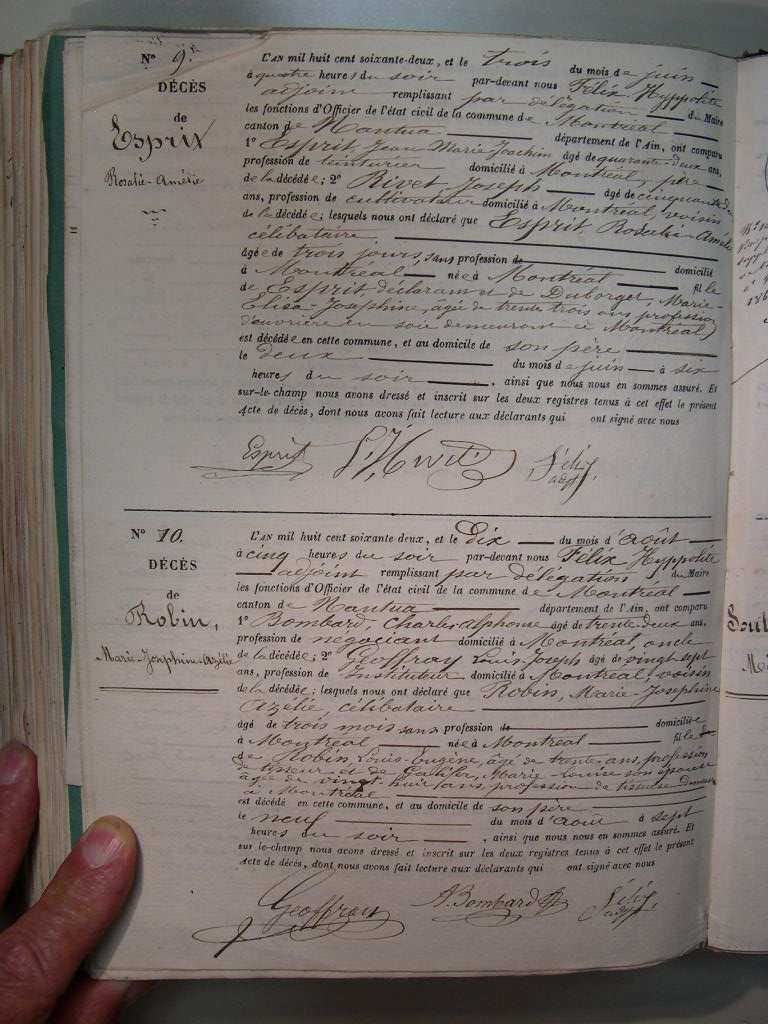 N° 9.
DÉCÈS
de
Esprit
Rosalie-Amélie
L'AN mil huit cent soixante-deux, et le trois du mois de juin
à quatre heures du soir par-devant nous Félix Hyppolite
adjoint remplissant par délégation du Maire
les fonctions d'Officier de l'état civil de la commune de Montréal
canton de Nantua département de l'Ain, ont comparu
1° Esprit Jean Marie Joachim âgé de quarante-deux ans,
profession de teinturier domicilié à Montréal, père
de la décédée; 2° Rivet Joseph âgé de cinquante
ans, profession de cultivateur domicilié à Montréal, voisin
de la décédée; lesquels nous ont déclaré que Esprit Rosalie-Amélie
célibataire
âgée de trois jours, sans profession de domicilié
à Montréal née à Montréal fille
de Esprit déclarant et de Duborget, Marie
Elisa-Josephine, âgée de trente trois ans profession
d'ouvrière en soie demeurant à Montréal
est décédée en cette commune, et au domicile de son père
le deux du mois de juin à six
heures du soir, ainsi que nous nous en sommes assuré. Et
sur-le-champ nous avons dressé et inscrit sur les deux registres tenus à cet effet le présent
Acte de décès, dont nous avons fait lecture aux déclarants qui ont signé avec nous
Esprit Félix
adjt.
N° 10.
DÉCÈS
de
Robin,
Marie-Josephine-Azélie
L'AN mil huit cent soixante-deux, et le Dix du mois d'août
à cinq heures du soir par-devant nous Félix Hyppolite
adjoint remplissant par délégation du Maire
les fonctions d'Officier de l'état civil de la commune de Montréal
canton de Nantua département de l'Ain, ont comparu
1° Bombard, Charles Alphonse âgé de trente-deux ans,
profession de négociant domicilié à Montréal, oncle
de la décédée; 2° Geoffray Louis-Joseph âgé de vingt sept
ans, profession de Instituteur domicilié à Montréal, voisin
de la décédée; lesquels nous ont déclaré que Robin, Marie-Josephine
Azélie, célibataire
âgé de trois mois sans profession de domiciliée
à Montréal née à Montréal fille
de Robin, Louis-Eugène, âgé de trente ans, profession
de tisseur et de Marie-Louise son épouse
âgée de vingt-huit ans, profession de tisseuse
à Montréal
est décédé en cette commune, et au domicile de son père
le neuf du mois d'août à sept
heures du soir, ainsi que nous nous en sommes assuré. Et
sur-le-champ nous avons dressé et inscrit sur les deux registres tenus à cet effet le présent
Acte de décès, dont nous avons fait lecture aux déclarants qui ont signé avec nous
Geoffray A. Bombard Félix
adjt.